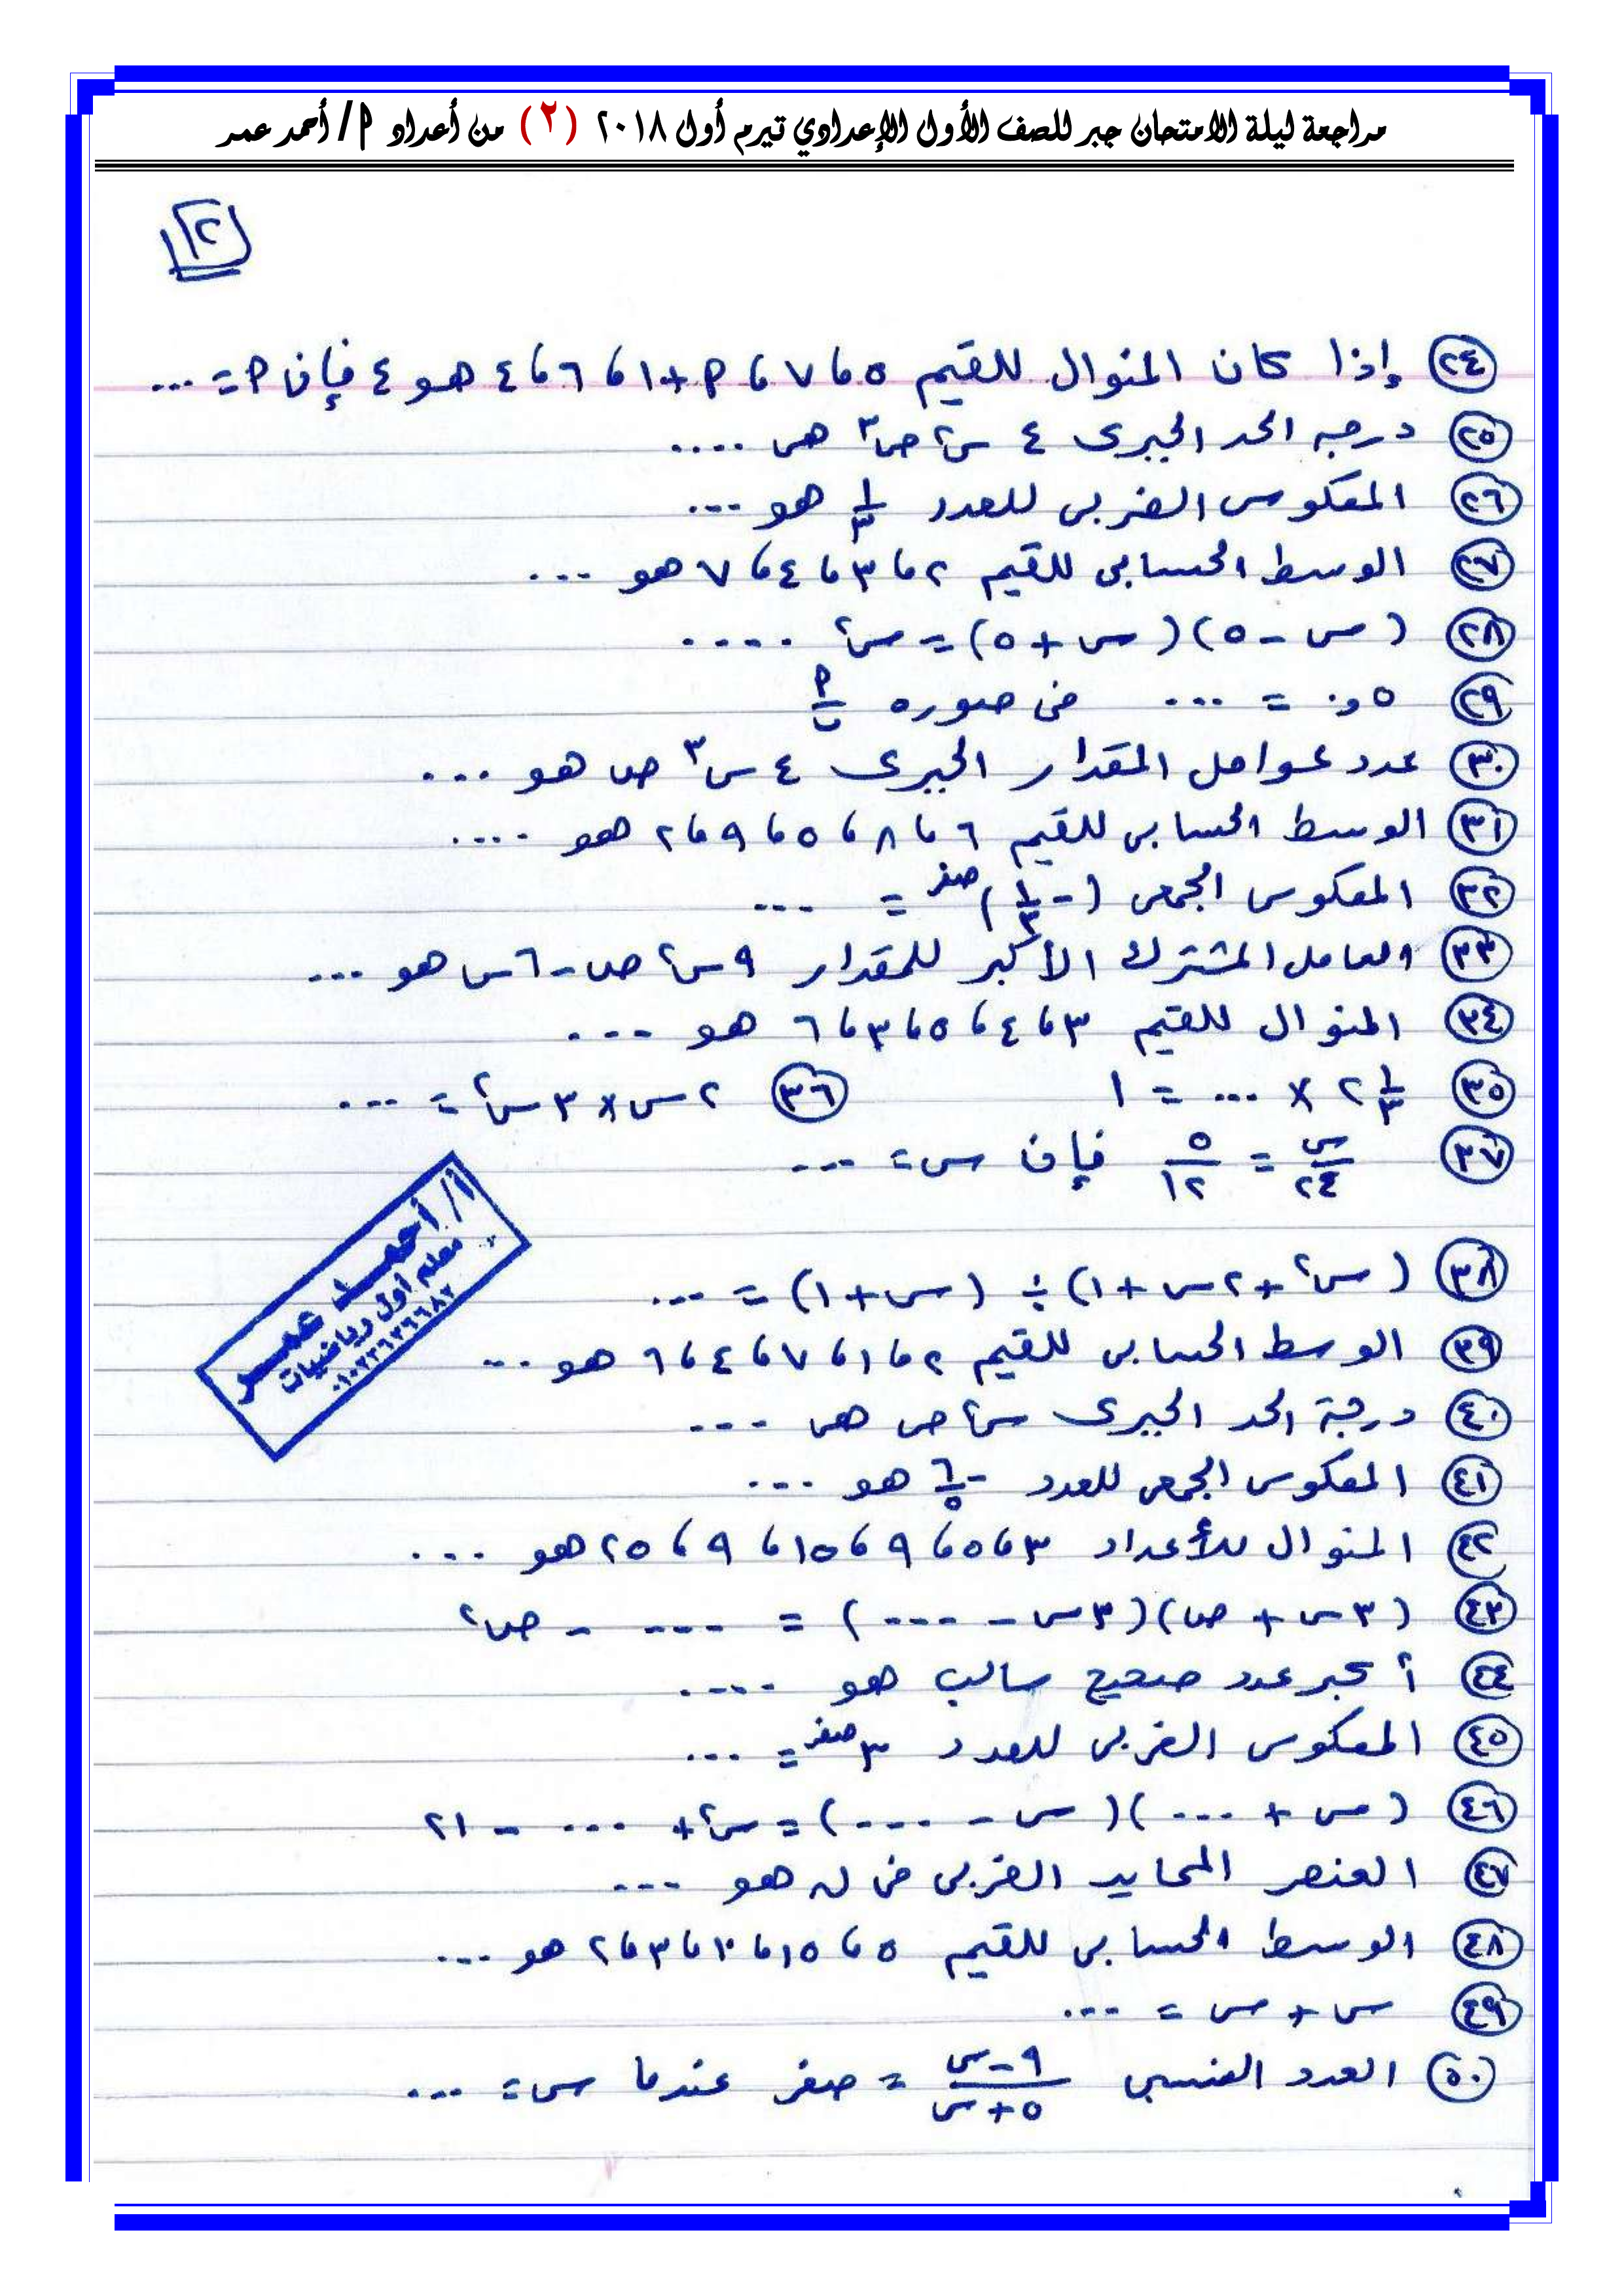 مراجعة ليلة الامتحان جبر للصف الأول الإعدادي تيرم أول ٢٠١٨ (٢) من أعداد أ / أحمد عمر
٢
٢٤ إذا كان المنوال للقيم ٥ ، ٧ ، أ + ١ ، ٦ ، ٤ هو ٤ فإن أ = ...
٢٥ درجه الحد الجبرى ٤ س٢ ص٣ هى ....
٢٦ المعكوس الضربى للعدد ١/٣ هو ...
٢٧ الوسط الحسابى للقيم ٢ ، ٣ ، ٤ ، ٧ هو ...
٢٨ (س - ٥)(س + ٥) = س٢ ....
٢٩ ٥و٠ = ... فى صوره أ/ب
٣٠ عدد عوامل المقدار الجبرى ٤ س٣ ص هو ...
٣١ الوسط الحسابى للقيم ٦ ، ٨ ، ٥ ، ٩ ، ٢ هو ....
٣٢ المعكوس الجمعى (- ١/٣)صفر = ...
٣٣ العامل المشترك الأكبر للمقدار ٩ س٢ ص - ٦ س هو ...
٣٤ المنوال للقيم ٣ ، ٤ ، ٥ ، ٣ ، ٦ هو ...
٣٥ ٢ ١/٣ × ... = ١ ٣٦ ٢ س × ٣ س٢ = ...
٣٧ س/٢٤ = ٥/١٢ فإن س = ...
٣٨ (س٢ + ٢ س + ١) ÷ (س + ١) = ...
٣٩ الوسط الحسابى للقيم ٢ ، ١ ، ٧ ، ٤ ، ٦ هو ...
٤٠ درجة الحد الجبرى س٢ ص هى ...
٤١ المعكوس الجمعى للعدد - ٦/٥ هو ...
٤٢ المنوال للأعداد ٣ ، ٥ ، ٩ ، ١٥ ، ٩ ، ٢٥ هو ...
٤٣ (٣ س + ص)(٣ س - ...) = ... - ص٢
٤٤ أكبر عدد صحيح سالب هو ....
٤٥ المعكوس الضربى للعدد ٣صفر = ...
٤٦ (س + ...)(س - ...) = س٢ + ... - ٢١
٤٧ العنصر المحايد الضربى فى ن هو ...
٤٨ الوسط الحسابى للقيم ٥ ، ١٥ ، ٢٠ ، ٣ ، ٢ هو ...
٤٩ س + س = ...
٥٠ العدد النسبى ٩ - س/٥ + س = صفر عندما س = ...
أ / أحمد عمر
معلم أول رياضيات